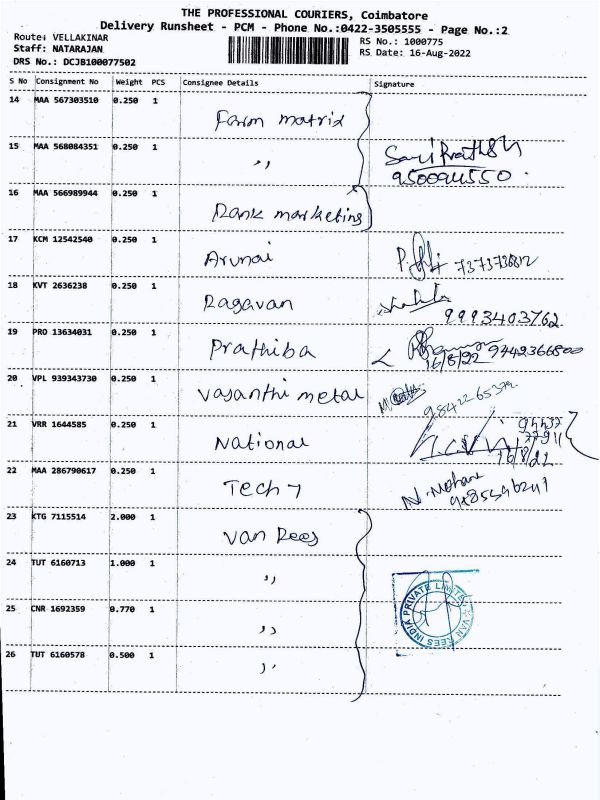 THE PROFESSIONAL COURIERS, Coimbatore
Delivery Runsheet - PCM - Phone No.:0422-3505555 - Page No.:2
Route: VELLAKINAR
RS No.: 1000775
Staff: NATARAJAN
RS Date: 16-Aug-2022
DRS No.: DCJB100077502
S No Consignment No Weight PCS Consignee Details Signature
14 MAA 567303510 0.250 1 Farm matrix
15 MAA 568084351 0.250 1 ,,
16 MAA 566989944 0.250 1 Rank marketing
17 KCM 12542540 0.250 1 Arunai
18 KVT 2636238 0.250 1 Ragavan 9993403762
19 PRO 13634031 0.250 1 Prathiba 16/8/22 9442366800
20 VPL 939343730 0.250 1 vasanthi metal
21 VRR 1644585 0.250 1 National 16/8/22
22 MAA 286790617 0.250 1 Tech 7 N. Mohan
23 KTG 7115514 2.000 1 Van Rees
24 TUT 6160713 1.000 1 ,,
25 CNR 1692359 0.770 1 ,,
26 TUT 6160578 0.500 1 ,,
VAN REES INDIA PRIVATE LIMITED